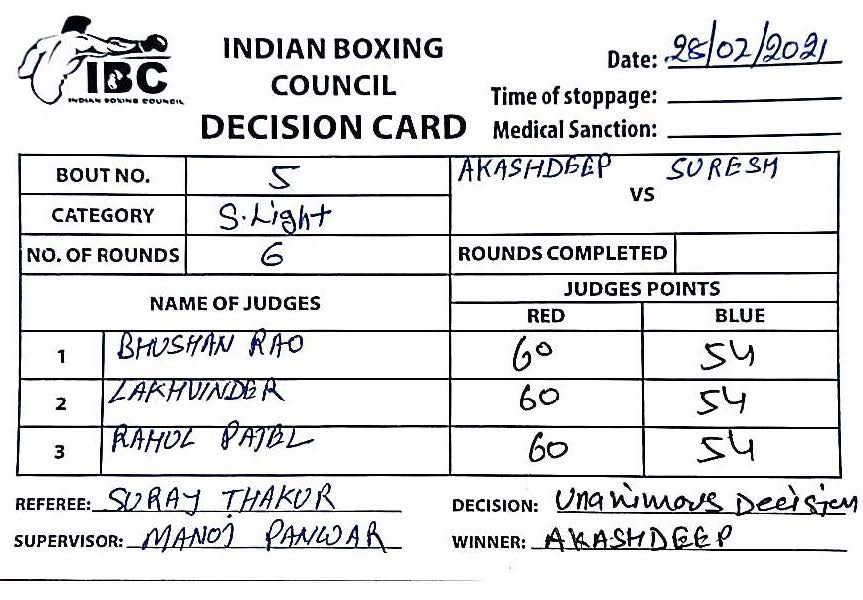 IBC
INDIAN BOXING COUNCIL
INDIAN BOXING
COUNCIL
DECISION CARD
Date: 28/02/2021
Time of stoppage:
Medical Sanction:
BOUT NO. 5 AKASHDEEP SURESH
VS
CATEGORY S.Light
NO. OF ROUNDS 6 ROUNDS COMPLETED
NAME OF JUDGES JUDGES POINTS
RED BLUE
1 BHUSHAN RAO 60 54
2 LAKHVINDER 60 54
3 RAHUL PATEL 60 54
REFEREE: SURAJ THAKUR DECISION: Unanimous Decision
SUPERVISOR: MANOJ PANWAR WINNER: AKASHDEEP